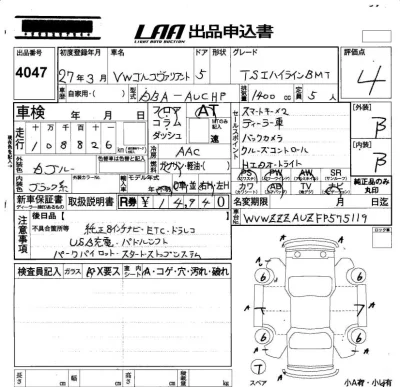 LAA 出品申込書
LIGHT AUTO AUCTION
出品番号 初度登録年月 車名 ドア 形状 グレード 評価点
4047 27年3月 VWゴルフヴァリアント 5 TSIハイラインBMT 4
車歴 自家用・( ) 型式 DBA-AUCHP 排気量 1400cc 定員 5人
車検 年 月 日 フロア コラム ダッシュ AT MTのみ記入 速
セールスポイント
スマートキー2
ディーラー車
バックカメラ
クルーズコントロール
HIDオートライト
【外装】 B
【内装】 B
走行 十万 万 千 百 十 一
108826
冷房 AAC
外装色 ガンブルー
燃料 ガソリン・軽油・( )
内装色 ブラック系
外装カラーNo.
輸入車 モデル年式
PS PW AW SR
カワ AB TV ナビ
純正品のみ丸印
新車保証書 取扱説明書 R券 ¥14940
名変期限 月 日迄
車歴No. WVWZZZAUZFP575119
注意事項
後日品( )
不具合箇所等
純正8インチナビ・ETC・ドラレコ
USB充電・パドルシフト
パークパイロット・スタートストップシステム
検査員記入 ガラス A・X要ス 車内シート A・コゲ・穴・汚れ・破れ
長さ cm 幅 cm 高さ cm 積載量 kg
スペア
小A有・小U有